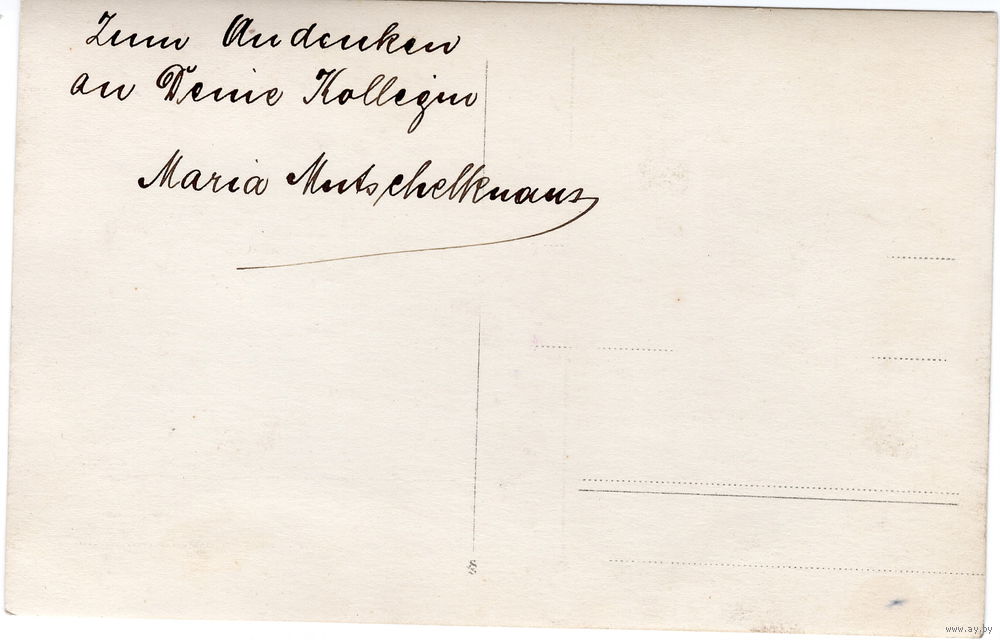 Zum Andenken
an Deine Kollegin
Maria Mutschelknaus
www.ay.by